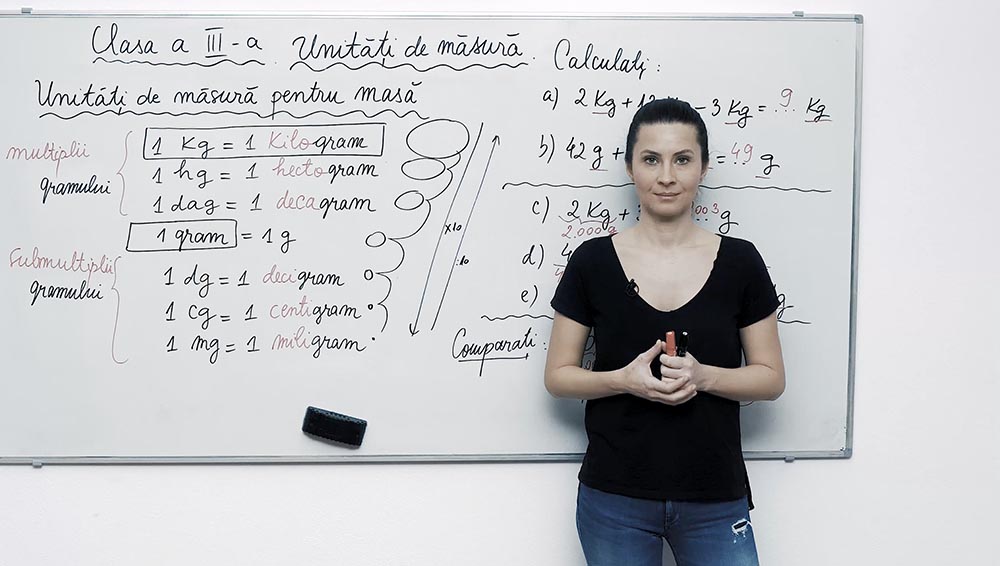 Clasa a III-a. Unități de măsură.
Unități de măsură pentru masă
multiplii
gramului
1 Kg = 1 Kilogram
1 hg = 1 hectogram
1 dag = 1 decagram
1 gram = 1 g
Submultiplii
gramului
1 dg = 1 decigram
1 cg = 1 centigram
1 mg = 1 miligram
x10
:10
Calculați:
a) 2 Kg + - 3 Kg = 9 Kg
b) 42 g + = 49 g
c) 2 Kg + g
2.000 g
d)
e) g
Comparați: